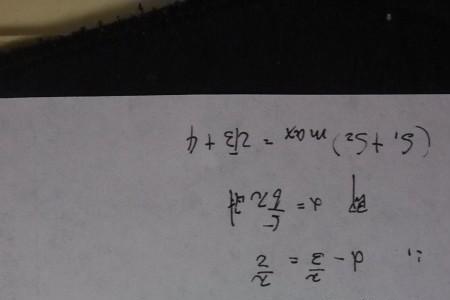 ∴ α - π/3 = π/2
即 α = 5/6 π 时
(S₁+S₂)max = 2√3 + 4